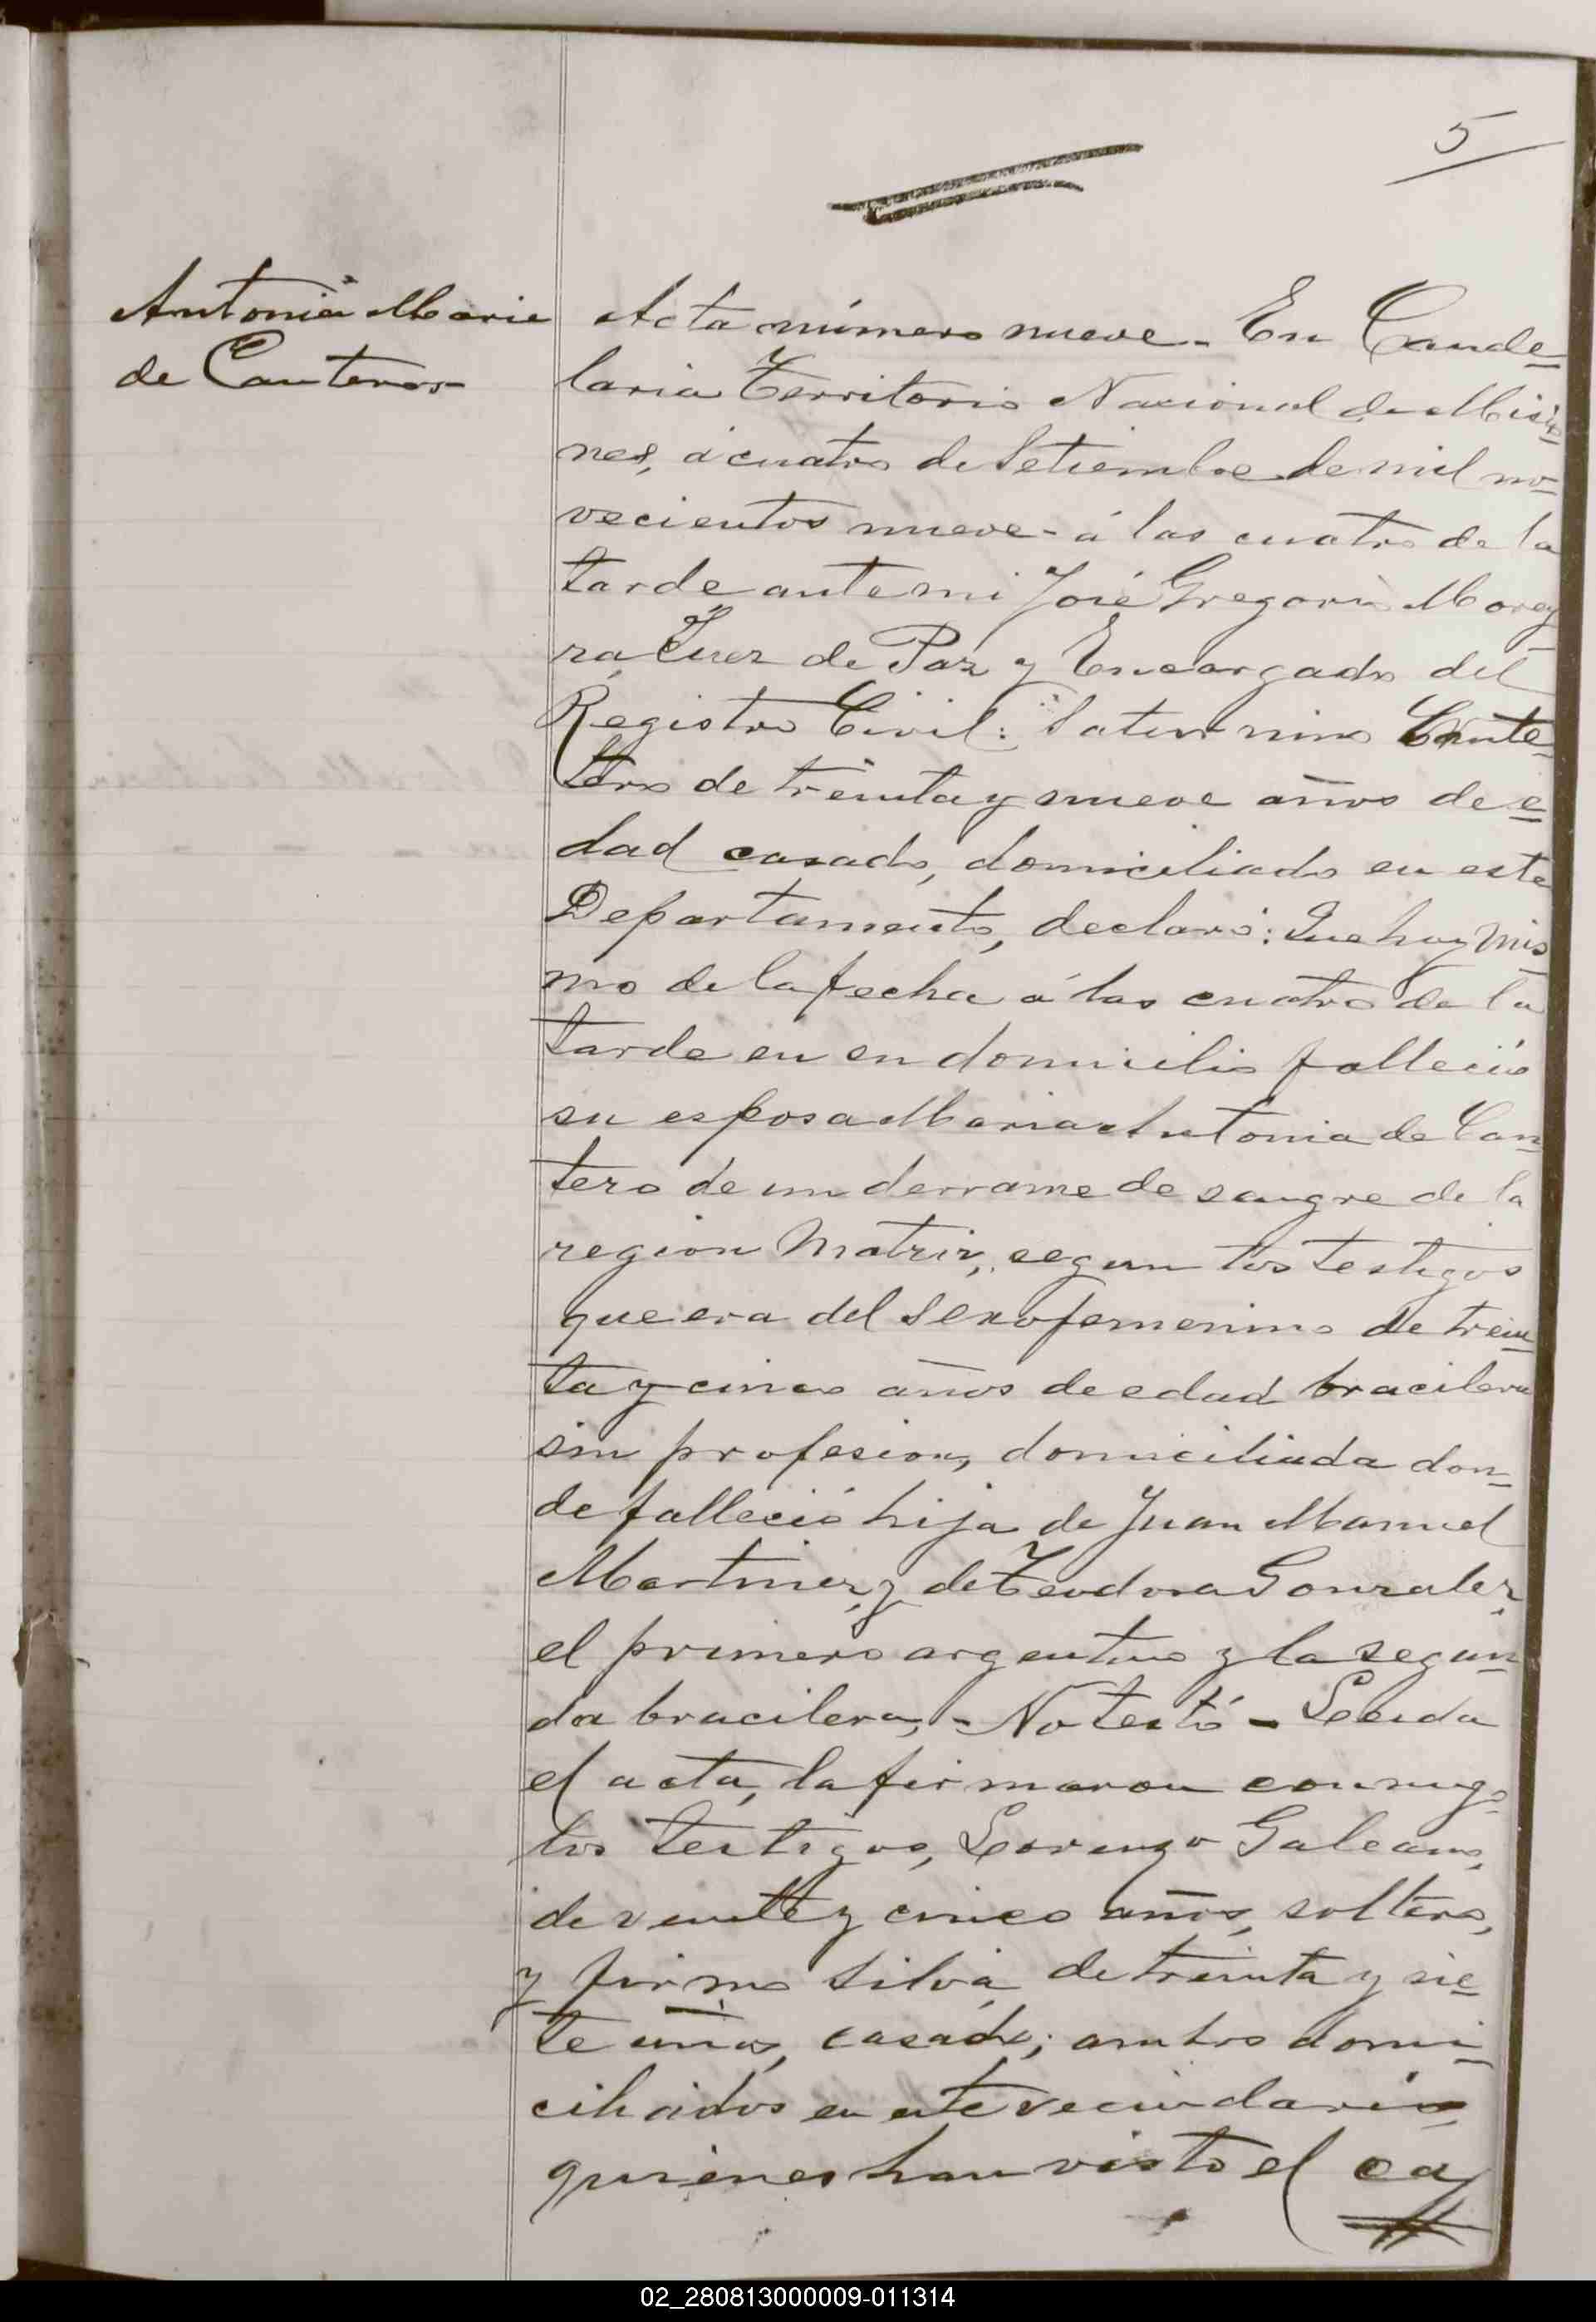 5
Antonia Maria
de Canteros
Acta número nueve - En Cande-
laria Territorio Nacional de Misio-
nes, á cuatro de Setiembre de mil no-
vecientos nueve - á las cuatro de la
tarde ante mi José Gregorio Morey-
ra Juez de Paz y Encargado del
Registro Civil: Saturnino Cante-
tero de treinta y nueve años de e-
dad casado, domiciliado en este
Departamento, declaró: Que hoy mis-
mo de la fecha á las cuatro de la
tarde en en domicilio falleció
su esposa Maria Antonia de Can-
tero de un derrame de sangre de la
region Matriz, segun los testigos
que era del Sexo femenino de trein-
ta y cinco años de edad bracilera
sin profesion, domiciliada don-
de falleció hija de Juan Manuel
Martinez, y de Teodora Gonzalez,
el primero argentino y la segun-
da bracilera, - No testó - Leida
el acta, la firmaron conmigo
los testigos, Lorenzo Galeano,
de veinte y cinco años, soltero,
y firmo Silva, de treinta y sie-
te años, casado; ambos domi-
ciliados en este vecindario
quienes han visto el ca
02_280813000009-011314